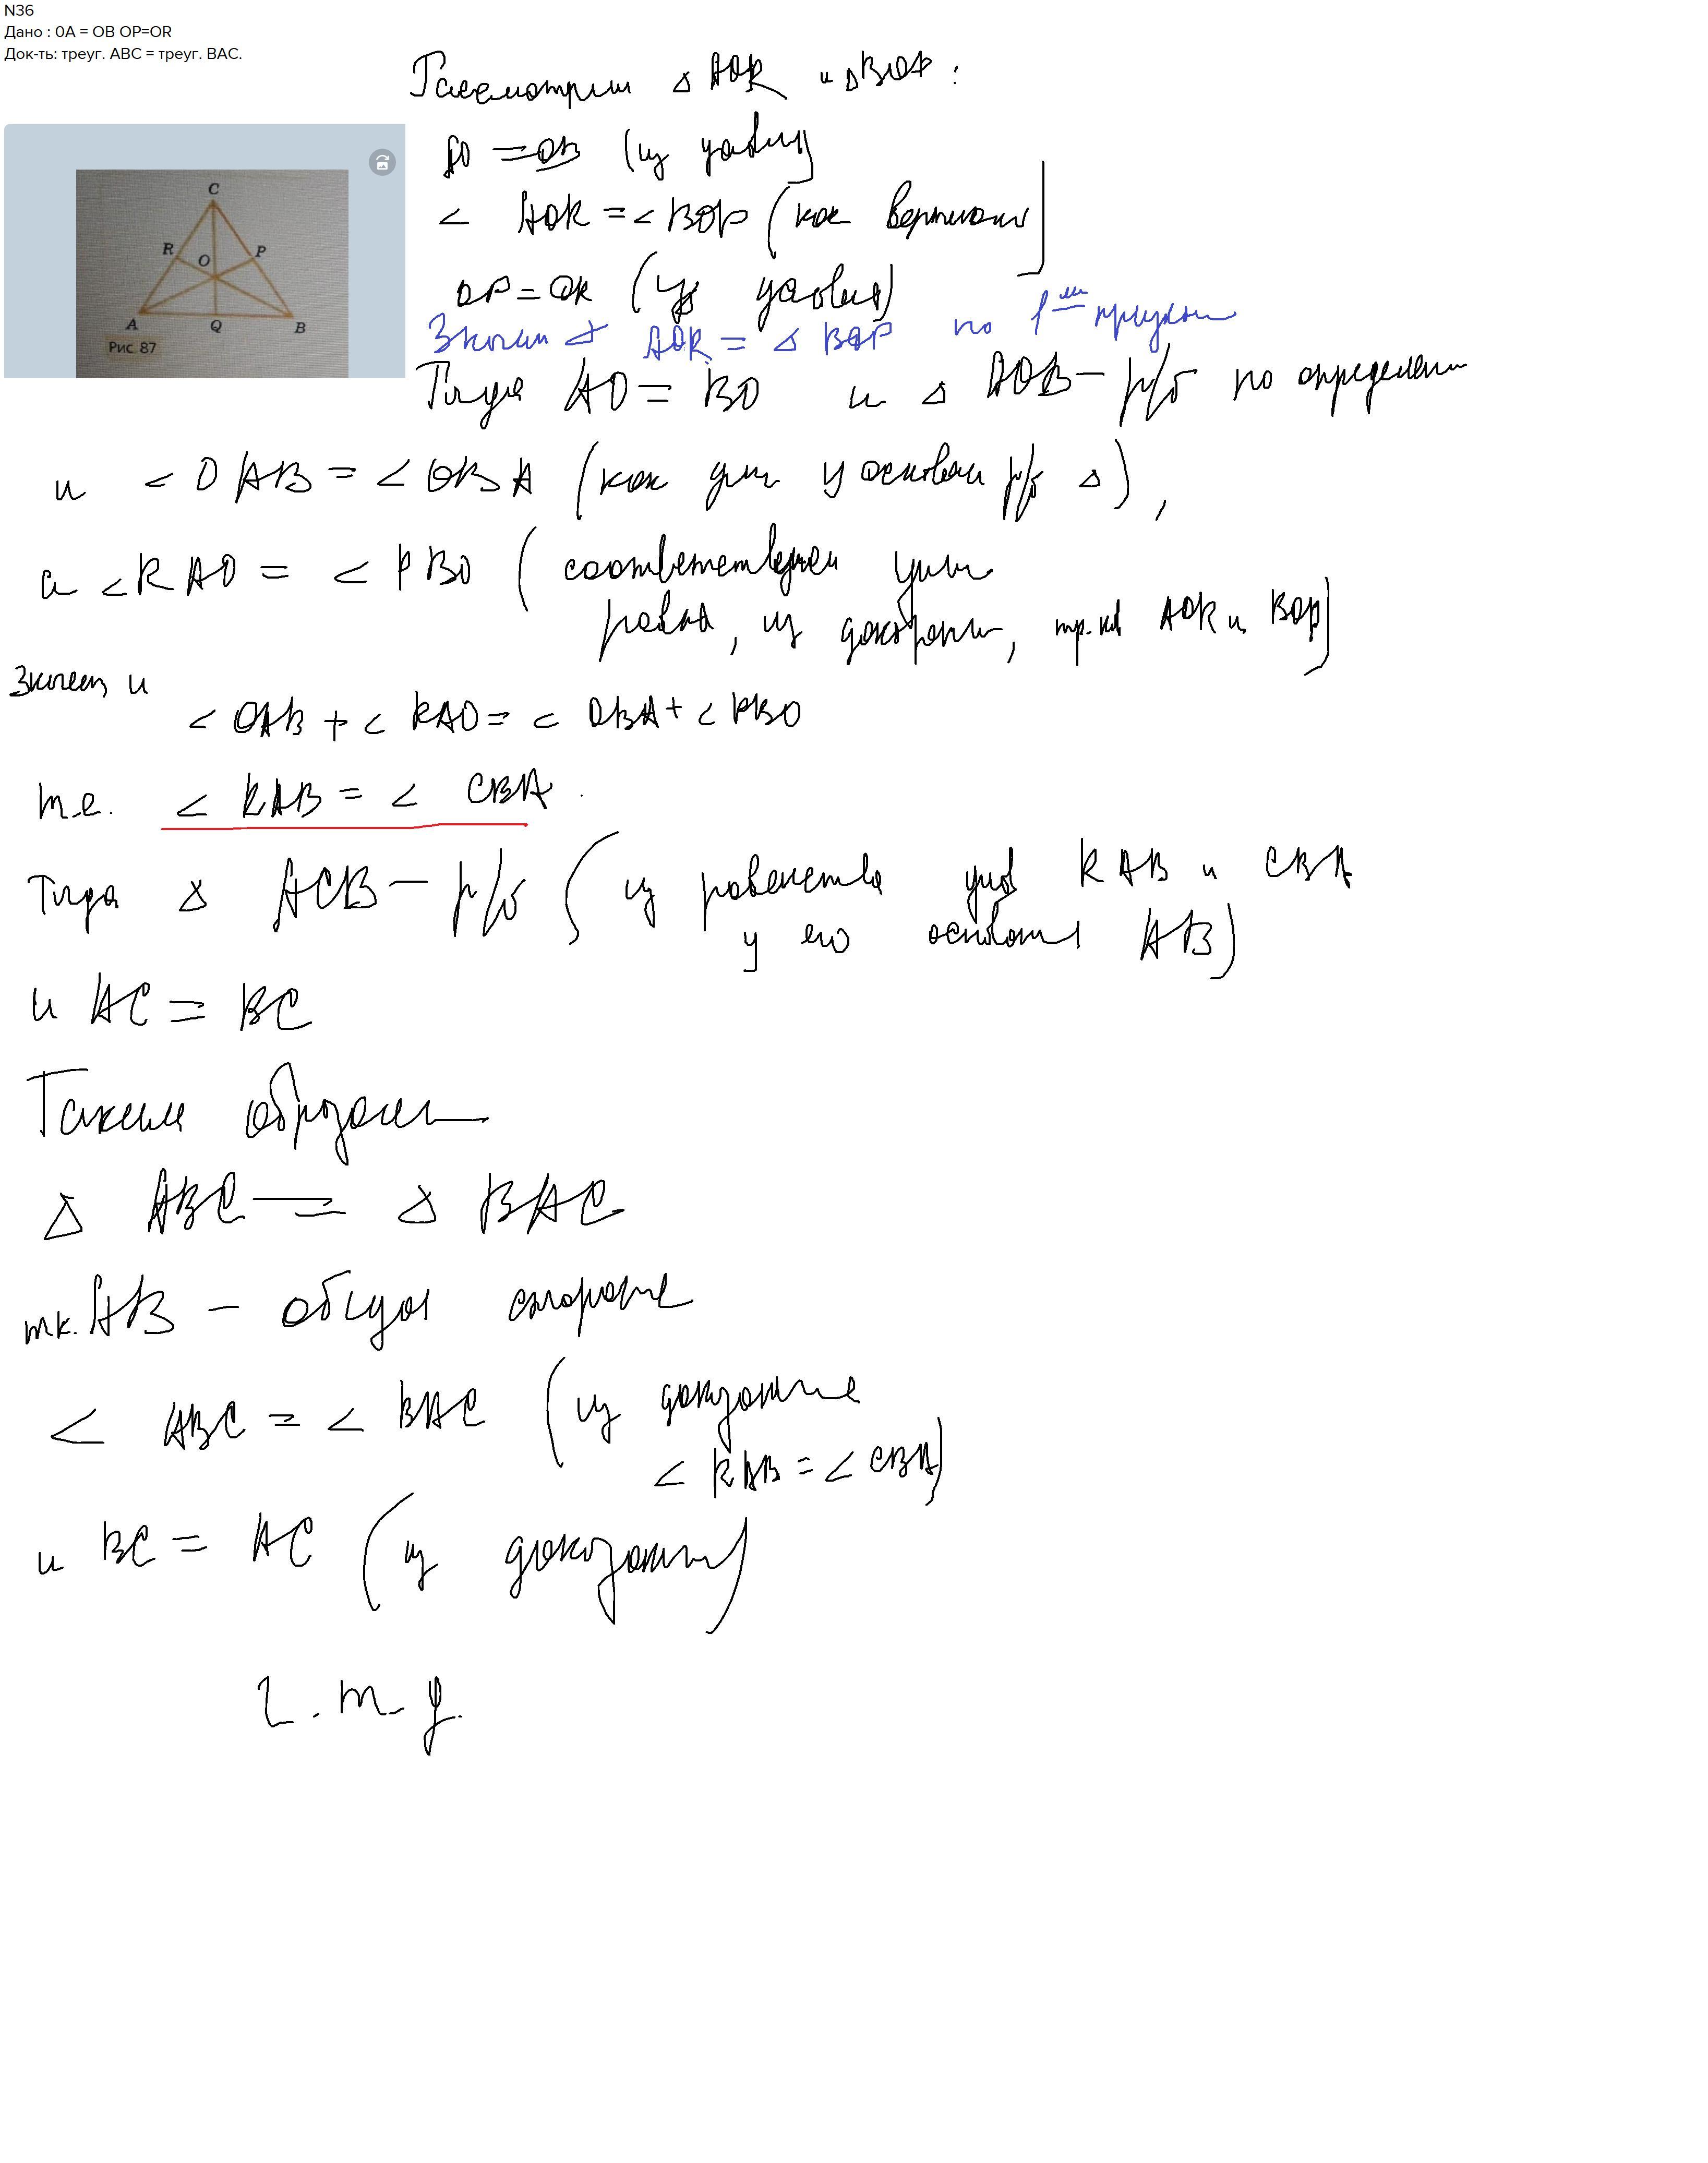 N36
Дано : 0A = OB OP=OR
Док-ть: треуг. ABC = треуг. BAC.
C
R
O
P
A
Q
B
Рис. 87
Рассмотрим Δ AOR и Δ BOP :
AO = OB (из условия)
< AOR = < BOP (как вертикальн)
OP = OR (из условия)
Значит Δ AOR = Δ BOP по 1му признаку
Тогда AO = BO и Δ AOB – р/б по определени
и < OAB = < OBA (как углы у основан р/б Δ),
а < RAO = < PBO (соответствующ углы
равны, из доказанн, тр-ков AOR и BOP)
Значит и
< OAB + < RAO = < OBA + < PBO
т.е. < RAB = < CBA .
Тогда Δ ACB – р/б (из равенства углов RAB и CBA
у его основания AB)
и AC = BC
Таким образом
Δ ABC = Δ BAC
т.к. AB – общая сторона
< ABC = < BAC (из доказанне
< RAB = < CBA)
и BC = AC (из доказанн)
Ч.т.д.